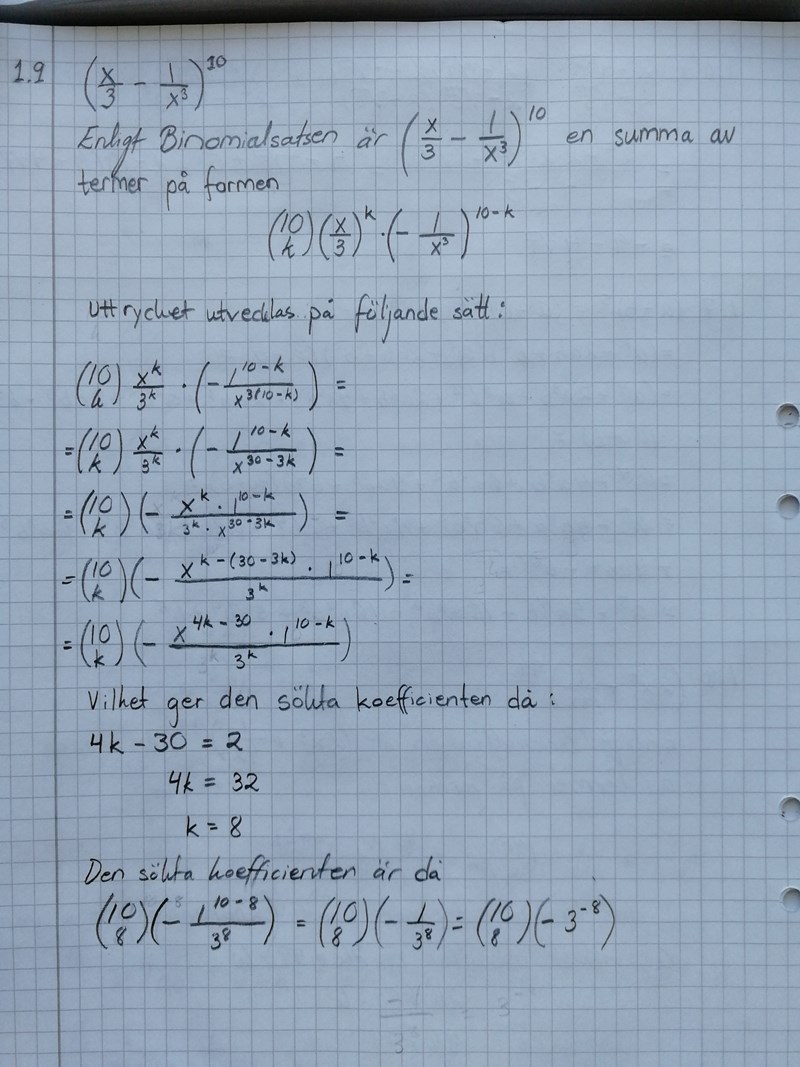 1.9 (x/3 - 1/x³)^10
Enligt Binomialsatsen är (x/3 - 1/x³)^10 en summa av
termer på formen
(10 k)(x/3)^k · (- 1/x³)^(10-k)
Uttrycket utvecklas på följande sätt:
(10 k) x^k/3^k · (- 1^(10-k)/x^(3(10-k))) =
= (10 k) x^k/3^k · (- 1^(10-k)/x^(30-3k)) =
= (10 k)(- x^k · 1^(10-k)/3^k · x^(30-3k)) =
= (10 k)(- x^(k-(30-3k)) · 1^(10-k)/3^k) =
= (10 k)(- x^(4k-30) · 1^(10-k)/3^k)
Vilket ger den sökta koefficienten då:
4k - 30 = 2
4k = 32
k = 8
Den sökta koefficienten är då
(10 8)(- 1^(10-8)/3^8) = (10 8)(- 1/3^8) = (10 8)(- 3^-8)